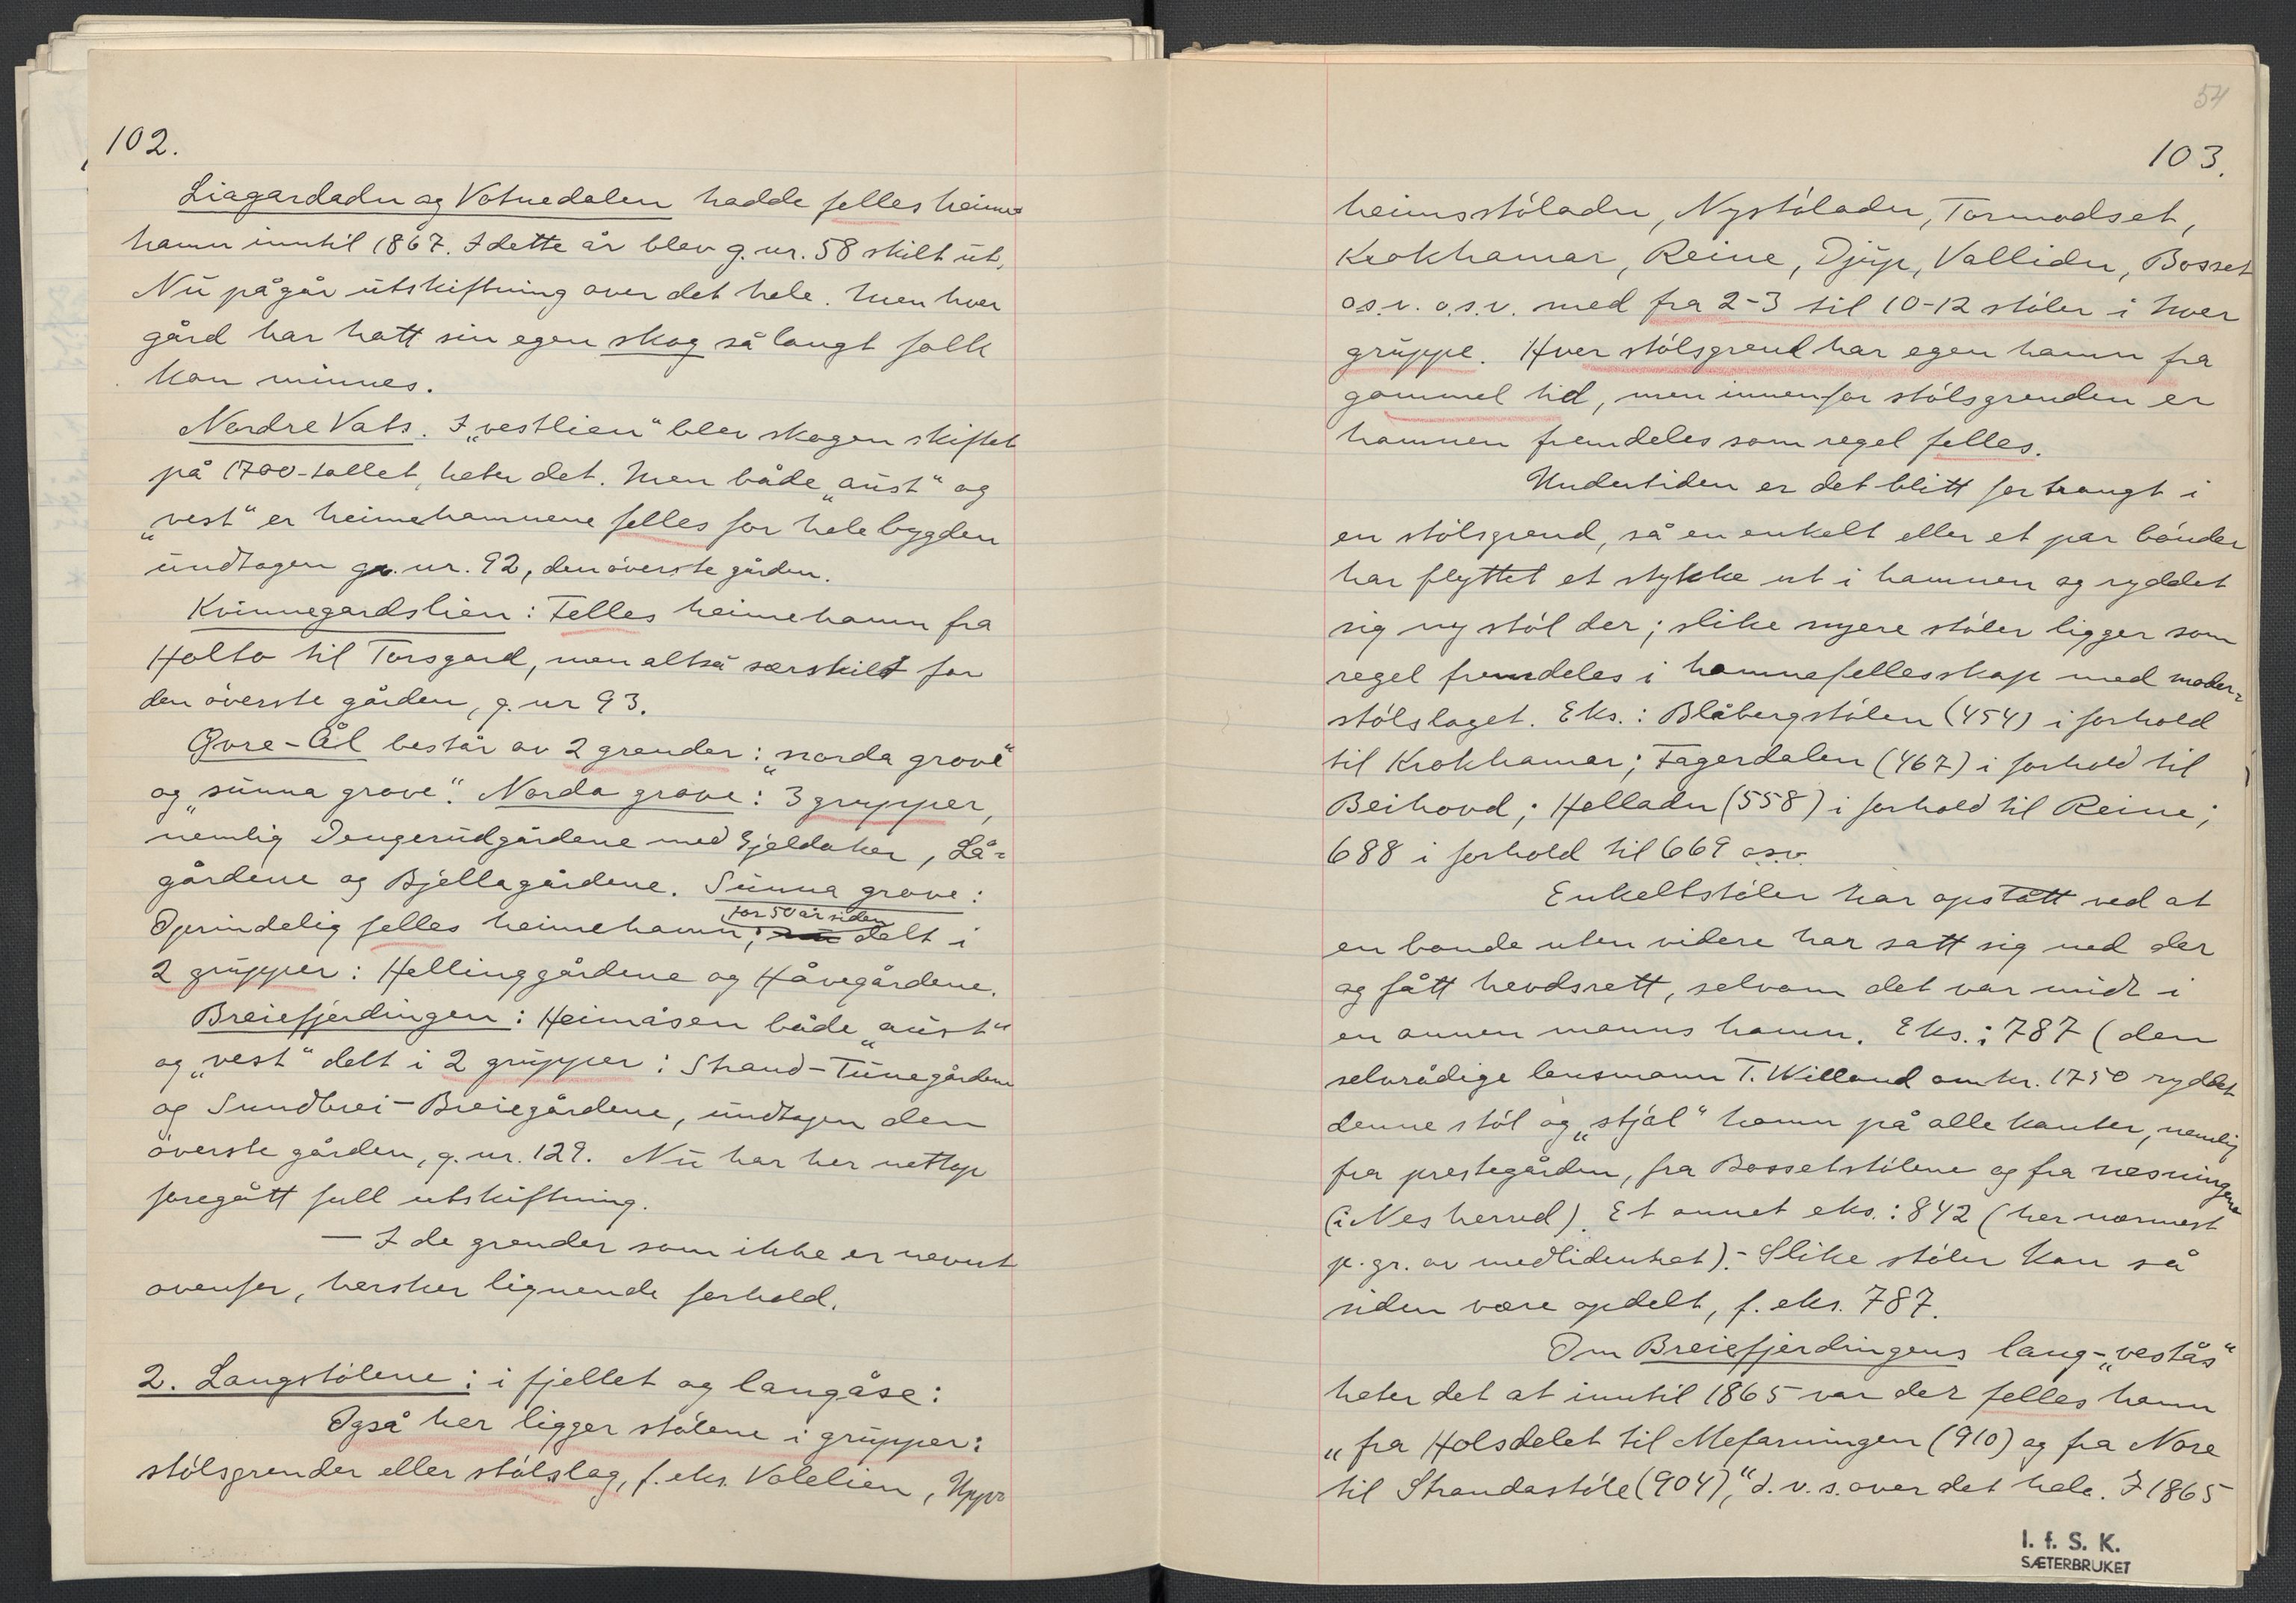 102.
Liagardadn og Votnedalen hadde felles heime
hamn inntil 1867. I dette år blev g. nr. 58 skilt ut.
Nu pågår utskiftning over det hele. Men hver
gård har hatt sin egen skog så langt folk
kan minnes.
Nordre Vats. I „vestlien“ blev skogen skiftet
på 1700-tallet, heter det. Men både „aust“ og
„vest“ er heimehamnene felles for hele bygden
undtagen gr. nr. 92, den överste gården.
Kvinnegardslien: Felles heimehamn fra
Holto til Torsgard, men altså særskilt for
den överste gården, g. nr 93.
Øvre-Ål består av 2 grender: „norda grove“
og „sunna grove“. Norda grove: 3 grupper,
nemlig Dengerudgårdene med Gjeldaker, Lå-
gårdene og Bjellagårdene. Sunna grove:
for 50 år siden
Oprindelig felles heimehamn; delt i
2 grupper: Hellinggårdene og Håvegårdene.
Breiefjerdingen: Heimåsen både „aust“
og „vest“ delt i 2 grupper: Strand-Tunegårdene
og Sundbrei-Breiegårdene, undtagen den
överste gården, g. nr. 129. Nu har her nettop
foregått full utskiftning.
— I de grender som ikke er nevnt
ovenfor, hersker lignende forhold.
2. Langstölene: i fjellet og langåse:
Også her ligger stölene i grupper:
stölsgrender eller stölslag, f. eks. Volelien, Upp-
54
103.
heimsstöladn, Nystöladn, Tormodset,
Krokhamar, Reine, Djup, Vallidn, Bosset
o.s.v. o.s.v. med fra 2-3 til 10-12 stöler i hver
gruppe. Hver stölsgrend har egen hamn fra
gammel tid, men innenfor stölsgrenden er
hamnen fremdeles som regel felles.
Undertiden er det blitt for trangt i
en stölsgrend, så en enkelt eller et par bönder
har flyttet et stykke ut i hamnen og ryddet
sig ny stöl der; slike nyere stöler ligger som
regel fremdeles i hamnefellesskap med moder-
stölslaget. Eks.: Blåbergstölen (454) i forhold
til Krokhamar; Fagerdalen (467) i forhold til
Beihovd; Helladn (558) i forhold til Reine;
688 i forhold til 669 o.s.v.
Enkeltstöler har opstått ved at
en bonde uten videre har satt sig ned der
og fått hevdsrett, selvom det var midt i
en annen manns hamn. Eks.: 787 (den
selvrådige lensmann T. Villand omkr. 1750 ryddet
denne stöl og „stjal“ hamn på alle kanter, nemlig
fra prestegården, fra Bossetstölene og fra næsningene
(i Nes herred). Et annet eks.: 842 (her nærmest
p. gr. av medlidenhet). - Slike stöler kan så
siden være opdelt, f. eks. 787.
Om Breiefjerdingens lang-„vestås“
heter det at inntil 1865 var der felles hamn
„fra Holsdelet til Mefarningen (910) og fra Nore
til Strandastöle (904),“ d. v. s. over det hele. I 1865
I. f. S. K.
SÆTERBRUKET